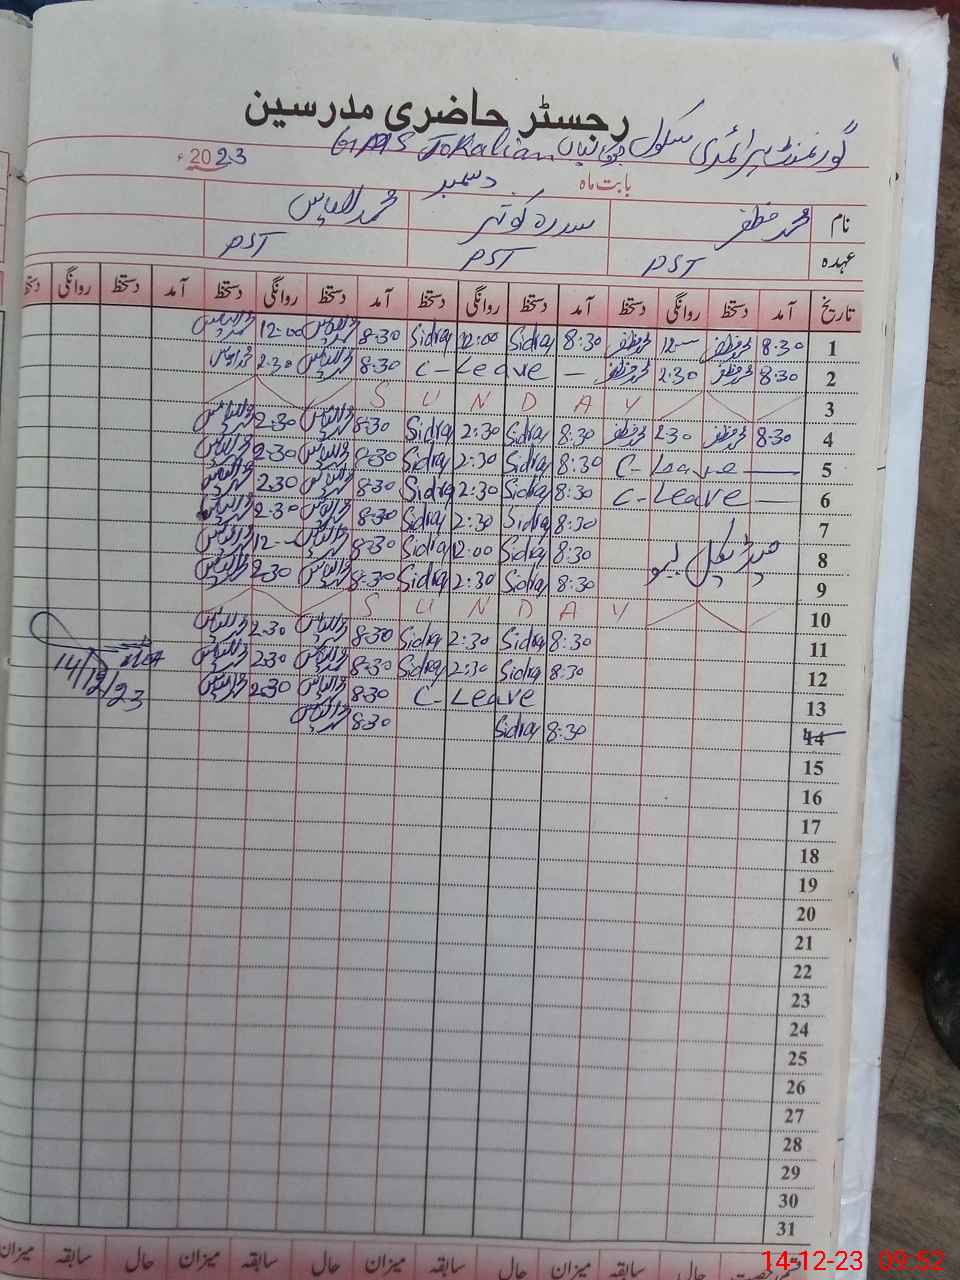 رجسٹر حاضری مدرسین
گورنمنٹ پرائمری سکول جوکالیاں GPS Jokalian
2023ء
بابت ماہ دسمبر
نام محمد مظفر سدرہ کوثر محمد الیاس
عہدہ PST PST PST
تاریخ آمد دستخط روانگی دستخط آمد دستخط روانگی دستخط آمد دستخط روانگی دستخط آمد دستخط روانگی دستخط
1 8:30 محمد مظفر 12— محمد مظفر 8:30 Sidra 12:00 Sidra 8:30 محمد الیاس 12:00 محمد الیاس
2 8:30 محمد مظفر 2:30 محمد مظفر C-Leave — 8:30 محمد الیاس 2:30 محمد الیاس
3 SUNDAY
4 8:30 محمد مظفر 2:30 محمد مظفر 8:30 Sidra 2:30 Sidra 8:30 محمد الیاس 2:30 محمد الیاس
5 C-Leave — 8:30 Sidra 2:30 Sidra 8:30 محمد الیاس 2:30 محمد الیاس
6 C-Leave — 8:30 Sidra 2:30 Sidra 8:30 محمد الیاس 2:30 محمد الیاس
7 8:30 Sidra 2:30 Sidra 8:30 محمد الیاس 2:30 محمد الیاس
8 میڈیکل لیو 8:30 Sidra 12:00 Sidra 8:30 محمد الیاس 12— محمد الیاس
9 8:30 Sidra 2:30 Sidra 8:30 محمد الیاس 2:30 محمد الیاس
10 SUNDAY
11 8:30 Sidra 2:30 Sidra 8:30 محمد الیاس 2:30 محمد الیاس
12 8:30 Sidra 2:30 Sidra 8:30 محمد الیاس 2:30 محمد الیاس
13 C Leave 8:30 محمد الیاس 2:30 محمد الیاس
14/12/23
14 8:30 Sidra 8:30 محمد الیاس
15
16
17
18
19
20
21
22
23
24
25
26
27
28
29
30
31
حال سابقہ میزان حال سابقہ میزان حال سابقہ میزان حال سابقہ میزان
14-12-23 09:52